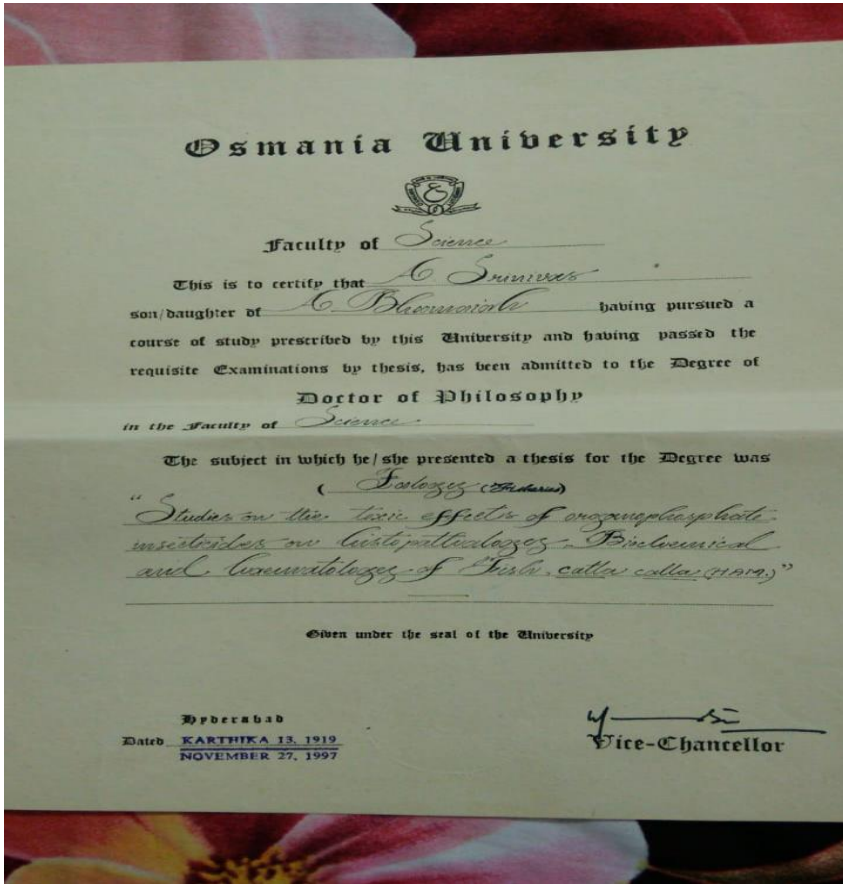 Osmania University
Faculty of Science
This is to certify that A Srinivas
son/daughter of A Bhoomaiah having pursued a
course of study prescribed by this University and having passed the
requisite Examinations by thesis, has been admitted to the Degree of
Doctor of Philosophy
in the Faculty of Science
The subject in which he/she presented a thesis for the Degree was
"Studies on the toxic effects of organophosphate
insecticides on histopathology Biochemical
and haematology of Fish. catla catla (HAM.)"
Given under the seal of the University
Hyderabad
Dated KARTHIKA 13, 1919
NOVEMBER 27, 1997
Vice-Chancellor